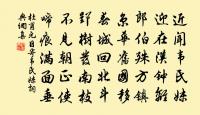 近聞韋氏妹
迎在漢鍾離
郎伯殊方鎮
京華舊國移
秦城回北斗
郢樹發南枝
不見朝正使
啼痕滿面垂
杜甫元日寄韋氏妹詞
典網集